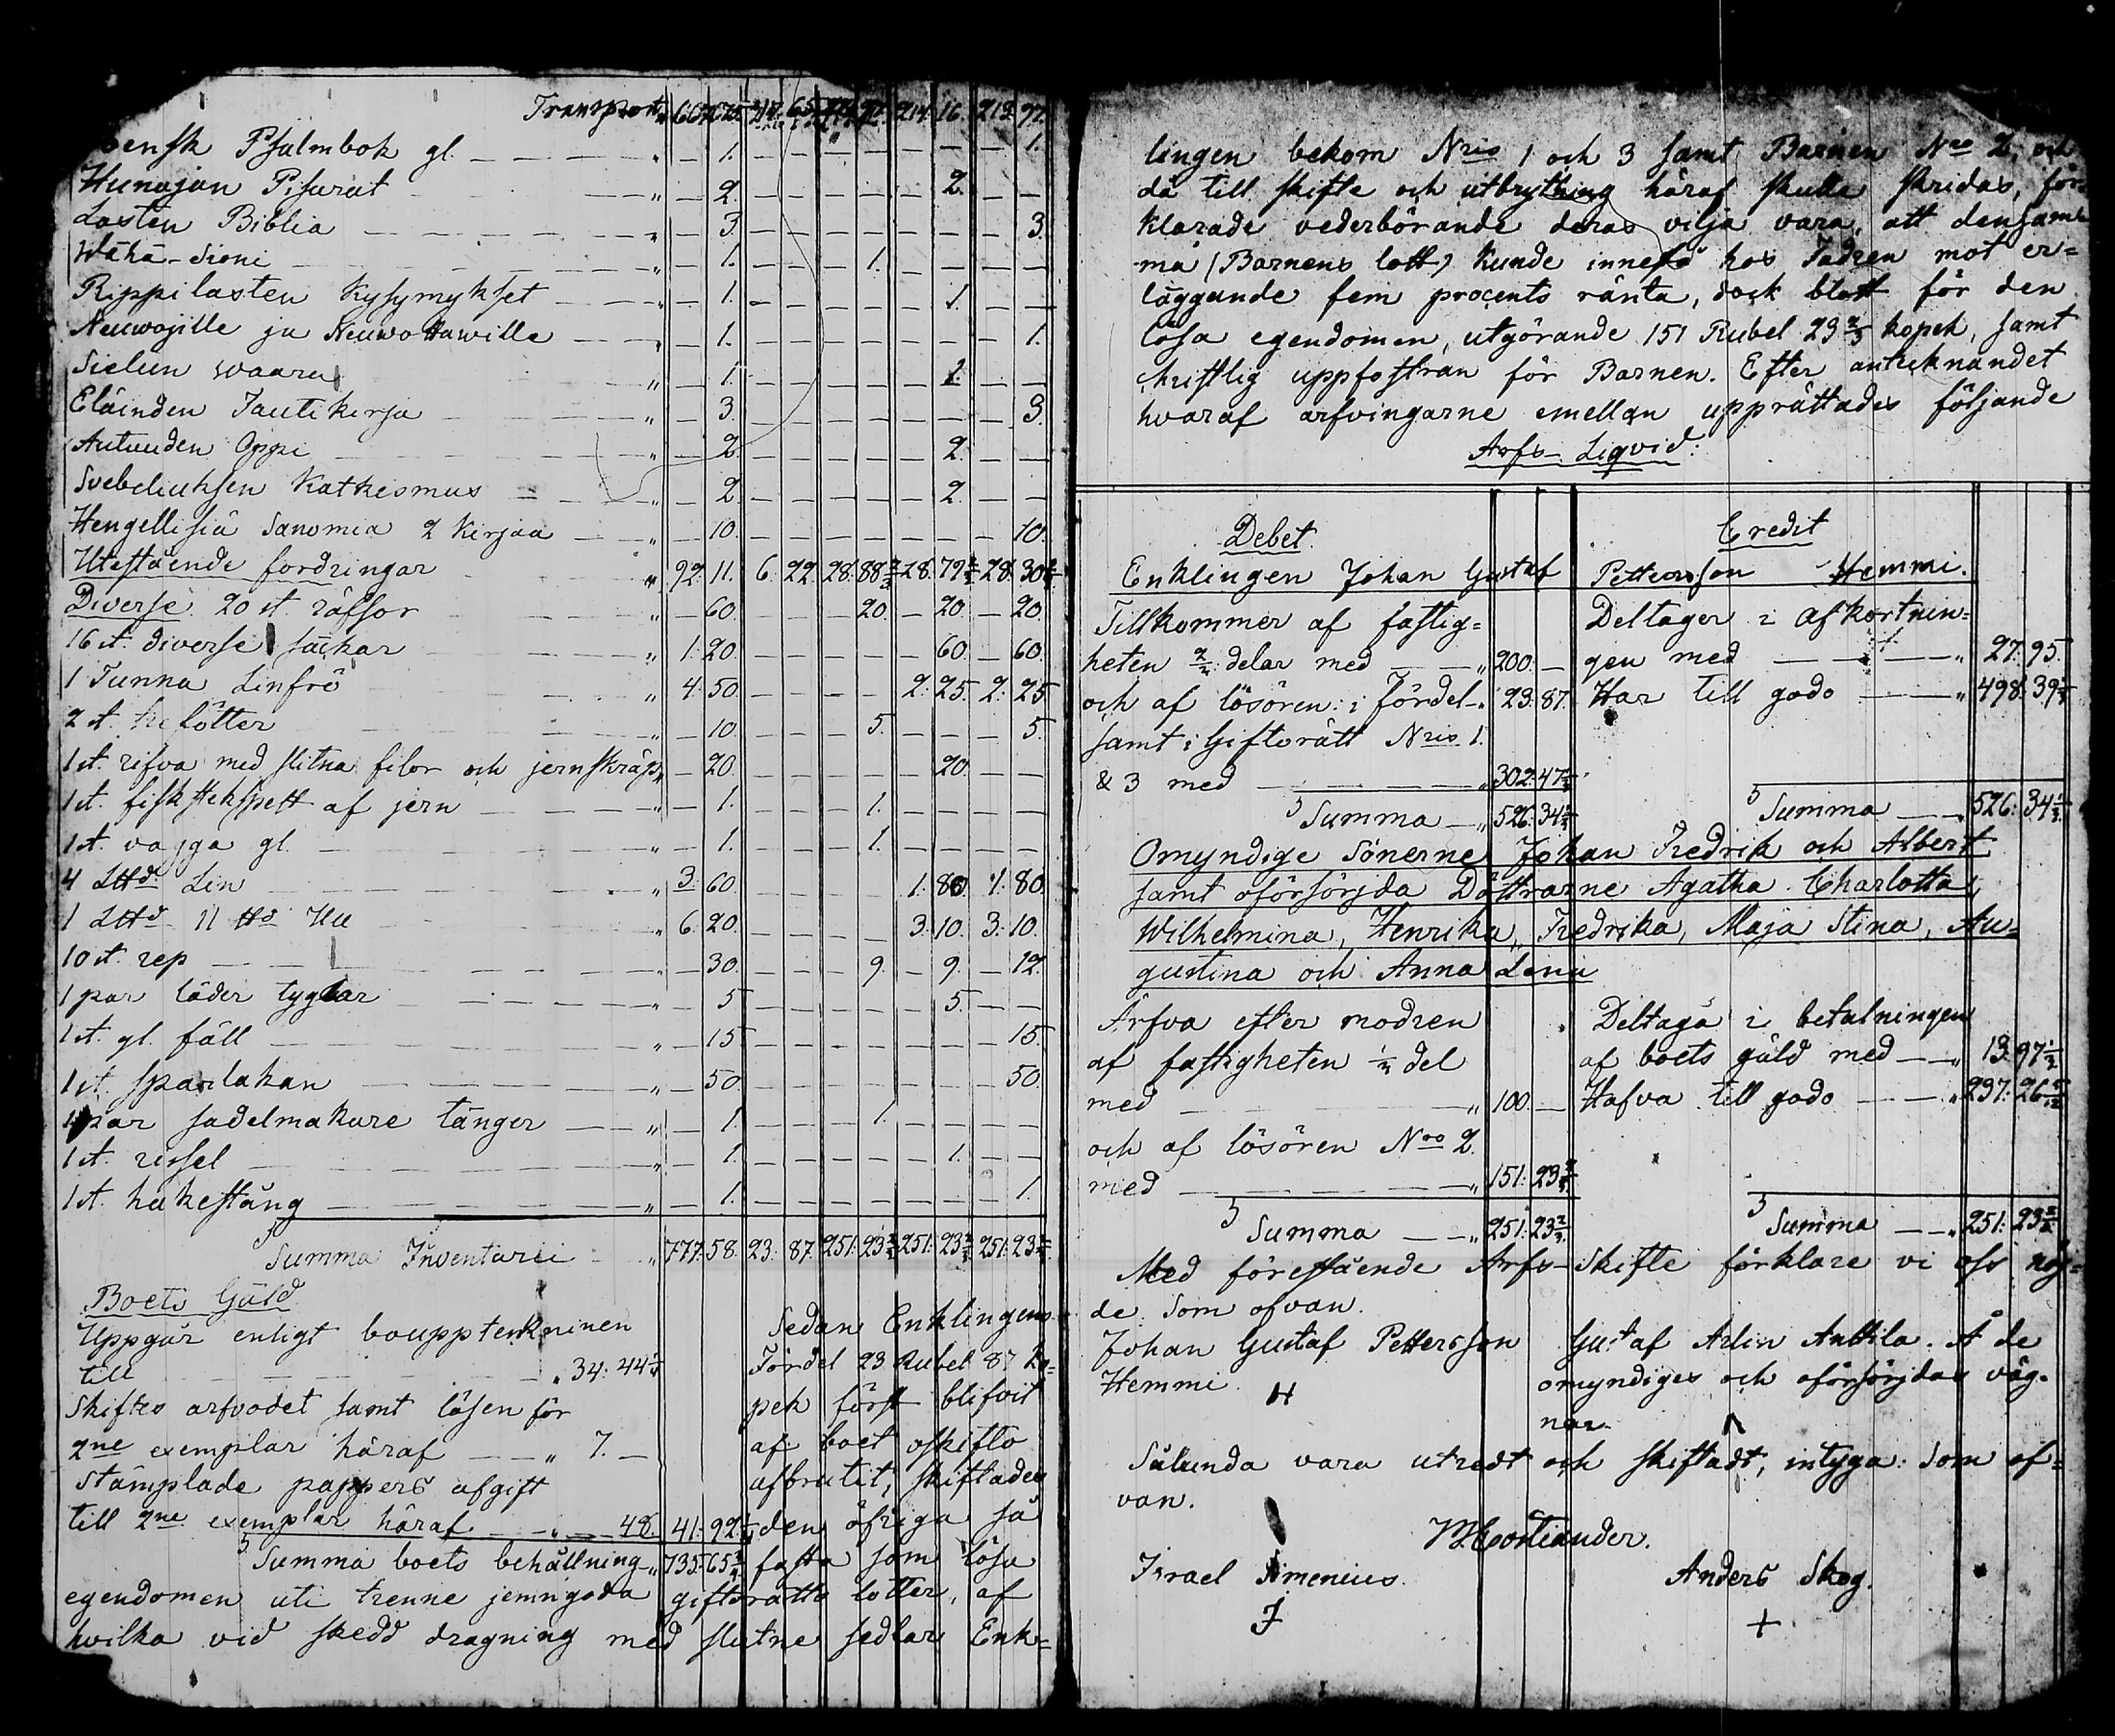 Transport
Svensk Psalmbok gl. — — — — " — 1. — — — — — — — 1.
Hunajan Pisarat — — " — 2. — — — — — 2. — —
Lasten Biblia — — — — — " — 3. — — — — — — — 3.
Wähä-Sioni — — — — — " — 1. — — — 1. — — — —
Rippilasten Kysymykset — — — " — 1. — — — — — 1. — —
Neuwojille ja Neuwottawille — — " — 1. — — — — — — — 1.
Sielun waara — — " — 1. — — — — — 1. — —
Eläinden Tautikirja — — " — 3. — — — — — — — 3.
Autuuden Oppi — — — " — 2. — — — — — 2. — —
Svebeliuksen Katkesmus — — — " — 2. — — — — — 2. — —
Hengellisiä Sanomia 2 Kirjaa — — " — 10. — — — — — — — 10.
Utestående fordringar " 92. 11. 6. 22. 28. 88 28. 79 28. 30
Diverse. 20 st. räfsor " — 60. — — — 20. — 20. — 20.
16 st. diverse säckar " 1. 20. — — — — — 60. — 60.
1 Tunna Linfrö " 4. 50. — — — — 2. 25. 2. 25
2 st. trefötter " — 10. — — — 5. — — — 5.
1 st. rifva med slitna filor och jernskräp " — 20. — — — — — 20. — —
1 st. fisk stekspett af jern — — " — 1. — — — 1. — — — —
1 st. vagga gl. — — — " — 1. — — — 1. — — — —
4 L℔d Lin " 3. 60. — — — — 1. 80. 1. 80.
1 L℔d 11 ℔d Ull " 6. 20. — — — — 3. 10. 3. 10.
10 st. rep — — — — " — 30. — — — 9. — 9. — 12.
1 par läder tyglar — — — " — 5. — — — — — 5. — —
1 st. gl. fäll — — — — " — 15. — — — — — — — 15.
1 st. sparlakan — — — " — 50. — — — — — — — 50.
1 par sadelmakare tänger — — " — 1. — — — 1. — — — —
1 st. rissel — — — — " — 1. — — — — — 1. — —
1 st. hakestång — — — — " — 1. — — — — — — — 1.
Summa Inventarii " 777. 58. 23. 87. 251. 23 251. 23 251. 23
Boets Gäld
Uppgår enligt bouppteckninen
till " 34: 44
Skiftes arfvodet samt lösen för
2ne exemplar häraf — — " 7. —
Stämplade pappers afgift
till 2ne exemplar häraf — " — 48. 41. 92
Summa boets behållning " 735. 65
Sedan Enklingens
Fördel 23 Rubel 87 Ko=
pek först blifvit
af boet oskifto
afbrutit, skiftades
den öfriga så
fasta som lösa
egendomen uti trenne jemngoda giftorätts lotter, af
hvilka vid skedd dragning med slutne sedlar Enk=
lingen bekom Nris 1 och 3 samt Barnen Nro 2, och
då till skifte och utbrytning häraf skulle skridas, för=
klarade vederbörande deras vilja vara, att densam=
ma (Barnens lott) kunde innestå hos Fadren mot er=
läggande fem procents ränta, dock blott för den
lösa egendomen, utgörande 151 Rubel 23 2/3 kopek, samt
kristlig uppfostran för Barnen. Efter antecknandet
hvaraf arfvingarne emellan upprättades följande
Arfs-Liqvid:
Debet. Credit
Enklingen Johan Gustaf Pettersson Hemmi.
Tillkommer af fastig=
heten delar med — — " 200. —
och af lösören: i Fördel " 23. 87.
samt i Giftorätt Nris 1.
& 3 med — — " 302. 47
Summa — " 526. 34
Deltager i afkortnin=
gen med — — — " 27. 95.
Har till godo — — " 498. 39
Summa — " 526. 34
Omyndige Sönerne Johan Fredrik och Albert
samt oförsörjda Döttrarne Agatha Charlotta,
Wilhelmina, Henrika, Fredrika, Maja Stina, Au=
gustina och Anna Lena
Ärfva efter modren
af fastigheten ½ del
med — — " 100. —
och af lösören Nro 2.
med — — — " 151. 23
Summa — — " 251. 23
Deltaga i betalningen
af boets gäld med — — " 13. 97 ½
Hafva till godo — — " 237. 26
Summa — — " 251. 23
Med förestående Arfs-Skifte förklare vi oss nöj=
de. Som ofvan.
Johan Gustaf Pettersson
Hemmi.
H
Gustaf Arlin Anttila. Å de
omyndiges och oförsörjdas väg.
nar.
Sålunda vara utredt och skiftadt, intyga: Som of=
van.
Israel Simenius.
Anders Skog.
+